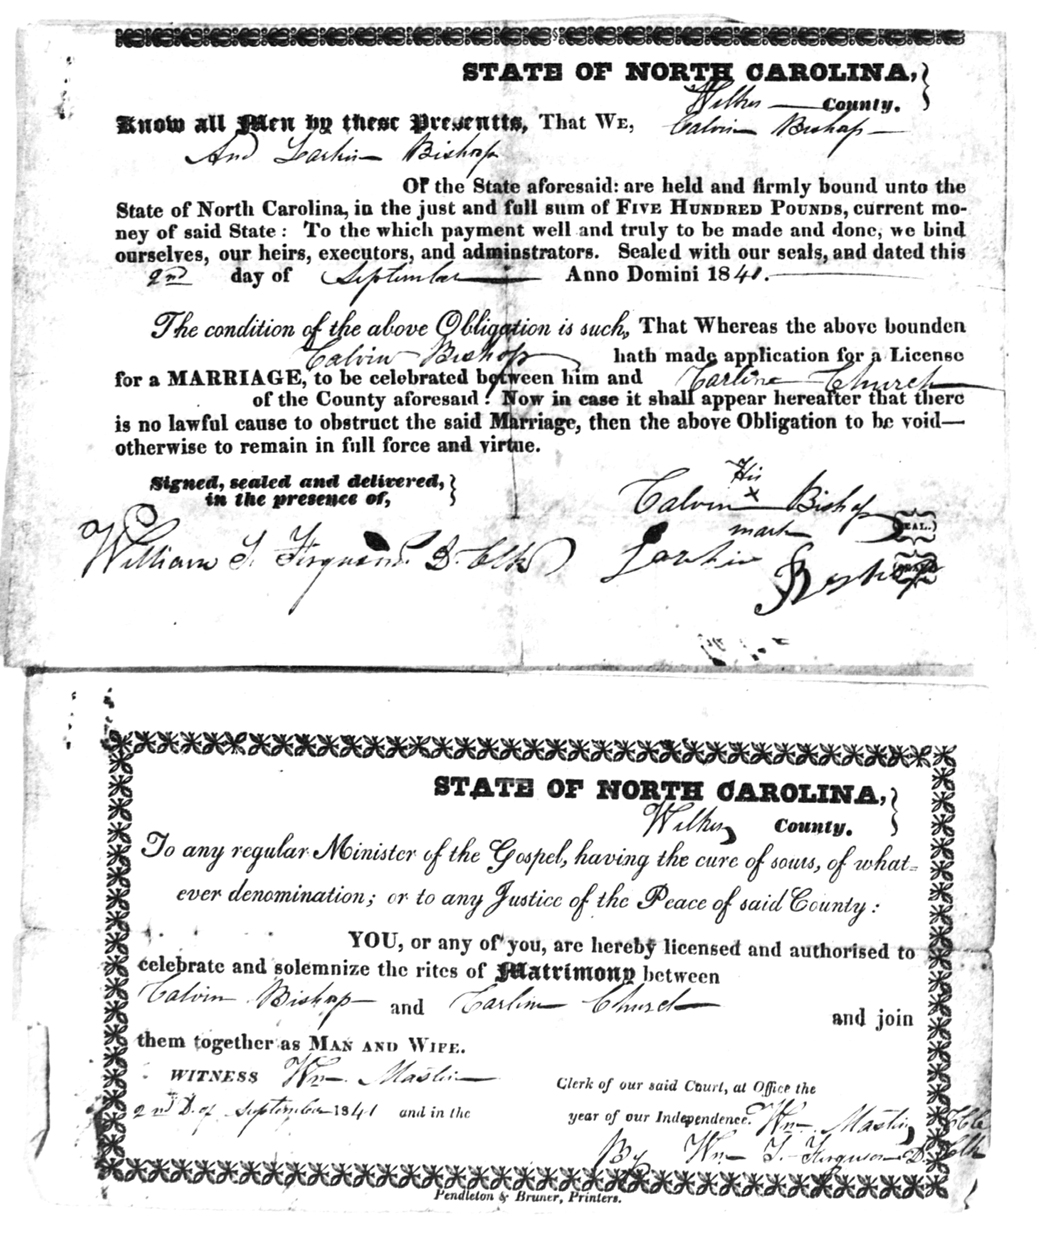 STATE OF NORTH CAROLINA,
Wilkes County.
Know all Men by these Presentts, That WE, Calvin Bishop
And Larkin Bishop
Of the State aforesaid: are held and firmly bound unto the
State of North Carolina, in the just and full sum of FIVE HUNDRED POUNDS, current mo-
ney of said State: To the which payment well and truly to be made and done, we bind
ourselves, our heirs, executors, and adminstrators. Sealed with our seals, and dated this
2nd day of September Anno Domini 1841.
The condition of the above Obligation is such, That Whereas the above bounden
Calvin Bishop hath made application for a License
for a MARRIAGE, to be celebrated between him and Carline Church
of the County aforesaid: Now in case it shall appear hereafter that there
is no lawful cause to obstruct the said Marriage, then the above Obligation to be void—
otherwise to remain in full force and virtue.
Signed, sealed and delivered,
in the presence of,
His
Calvin x Bishop
mark
William T. Ferguson D. Clk
Larkin Bishop
STATE OF NORTH CAROLINA,
Wilkes County.
To any regular Minister of the Gospel, having the cure of souls, of what-
ever denomination; or to any Justice of the Peace of said County:
YOU, or any of you, are hereby licensed and authorised to
celebrate and solemnize the rites of Matrimony between
Calvin Bishop and Carline Church and join
them together as MAN AND WIFE.
WITNESS Wm. Mastin Clerk of our said Court, at Office the
2nd D. of September 1841 and in the year of our Independence. Wm. Mastin Clk
By Wm T. Ferguson D. Clk
Pendleton & Bruner, Printers.